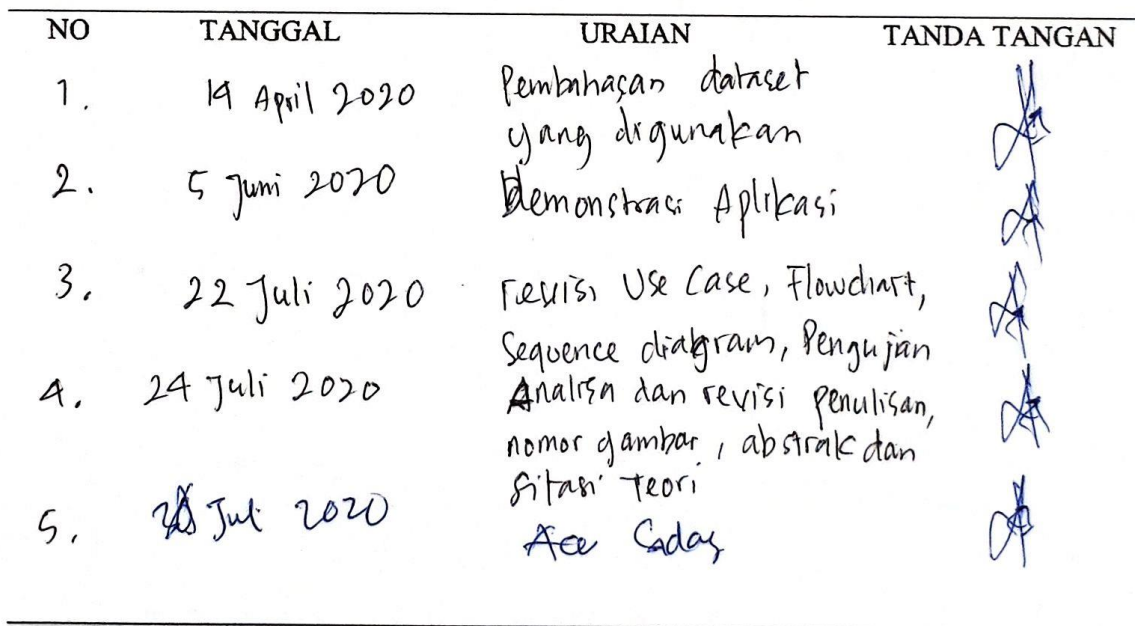 NO TANGGAL URAIAN TANDA TANGAN
1. 14 April 2020 Pembahasan dataset
yang digunakan
2. 5 Juni 2020 Demonstrasi Aplikasi
3. 22 Juli 2020 revisi Use Case, Flowchart,
Sequence diagram, Pengujian
4. 24 Juli 2020 Analisa dan revisi penulisan,
nomor gambar, abstrak dan
sitasi teori
5. Juli 2020 Acc